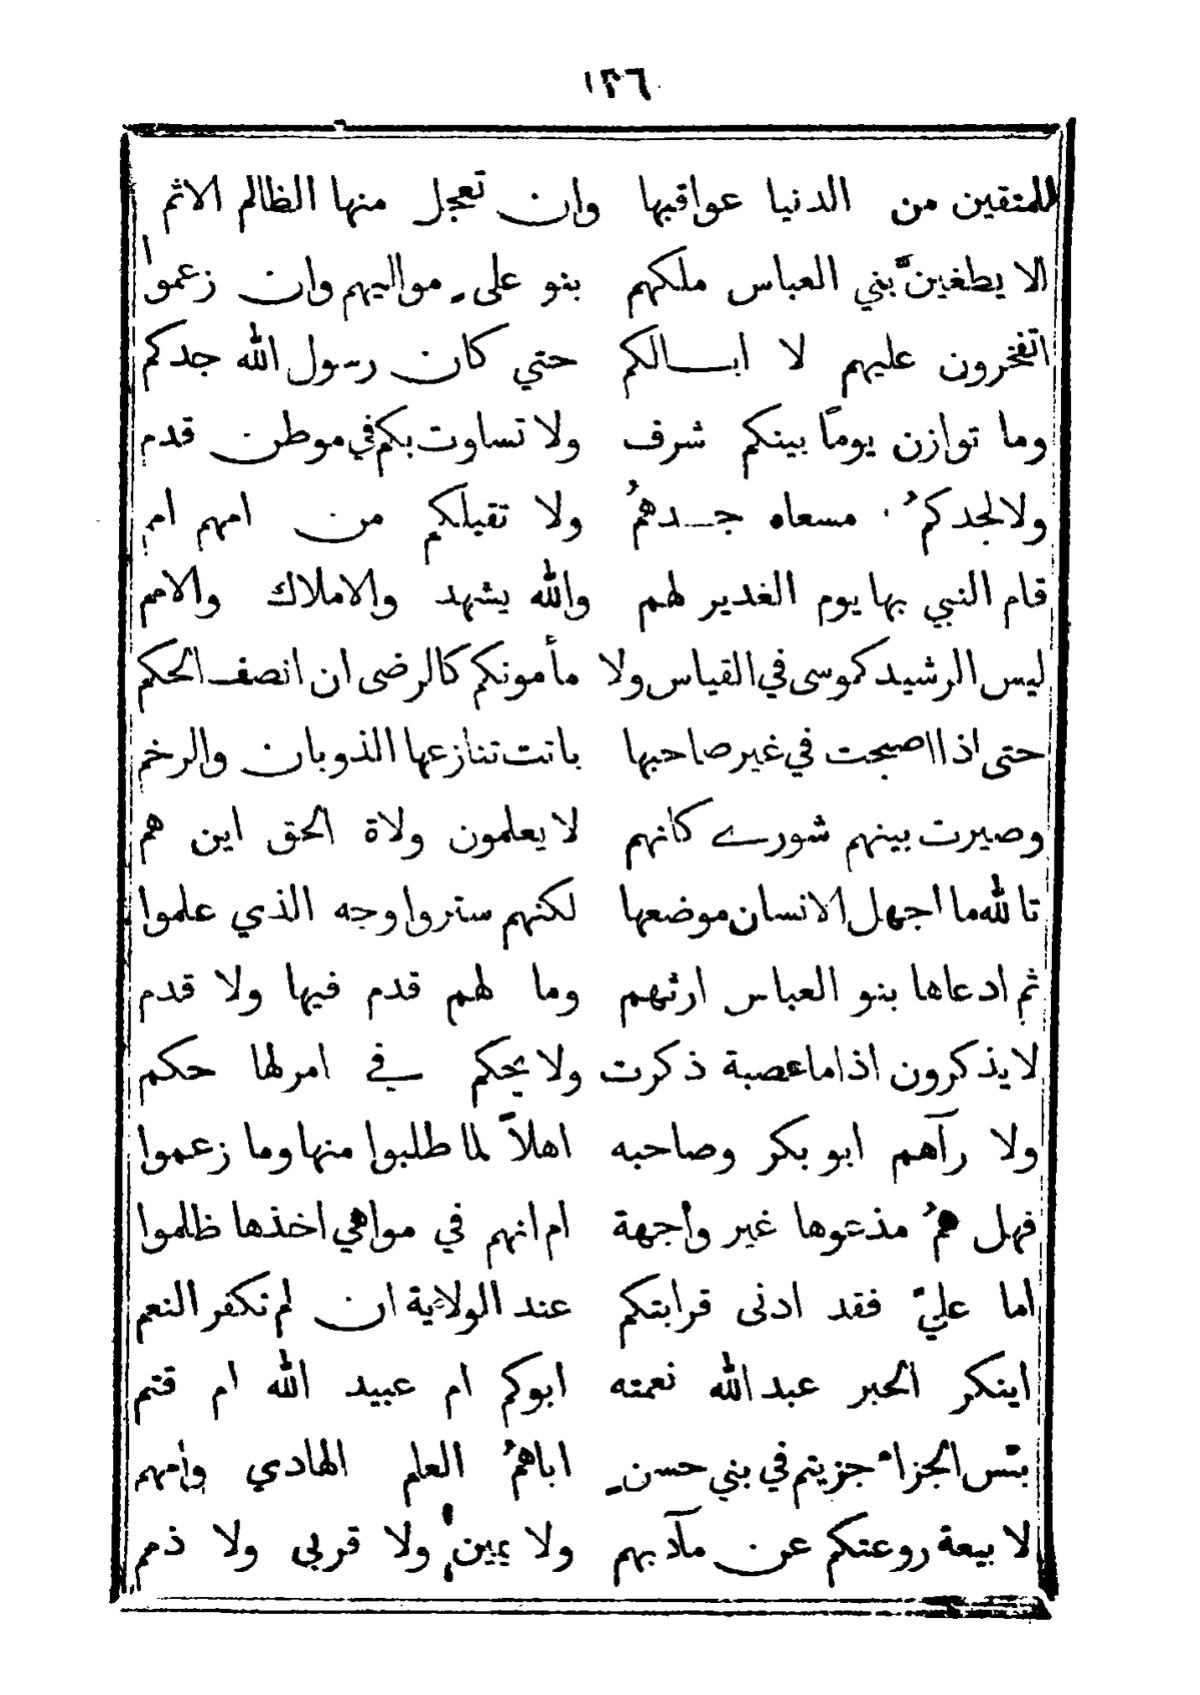 ١٣٦
للمتقين من الدنيا عواقبها وان تعجل منها الظالم الاثم
الا يطغينَّ بني العباس ملكهم بنو علىٍ مواليهم وان زعموا
اتفخرون عليهم لا ابالكم حتي كان رسول الله جدكم
وما توازن يوماً بينكم شرف ولا تساوت بكم في موطن قدم
ولا لجدكمُ مسعاه جدهمُ ولا تقيلكم من امهم ام
قام النبي بها يوم الغدير لهم والله يشهد والاملاك والامم
ليس الرشيد كموسى في القياس ولا مأمونكم كالرضى ان انصف الحكم
حتى اذا اصبحت في غير صاحبها باتت تنازعها الذوبان والرخم
وصيرت بينهم شورے كانهم لا يعلمون ولاة الحق اين هم
تالله ما اجهل الانسان موضعها لكنهم ستروا وجه الذي علموا
ثم ادعاها بنو العباس ارثهم وما لهم قدم فيها ولا قدم
لا يذكرون اذا ما عصبة ذكرت ولا يحكم في امر لها حكم
ولا رآهم ابو بكر وصاحبه اهلاً لما طلبوا منها وما زعموا
فهل همُ مذعوها غير واجهة ام انهم في مواهي اخذها ظلموا
اما عليّ فقد ادنى قرابتكم عند الولاية ان لم تكفر النعم
اينكر الحبر عبد الله نعمته ابوكم ام عبيد الله ام قتم
بئس الجزاء جزيتم في بني حسنٍ اباهمُ العلم الهادي وامهم
لا بيعة روعتكم عن مآدبهم ولا يمين ولا قربى ولا ذمم